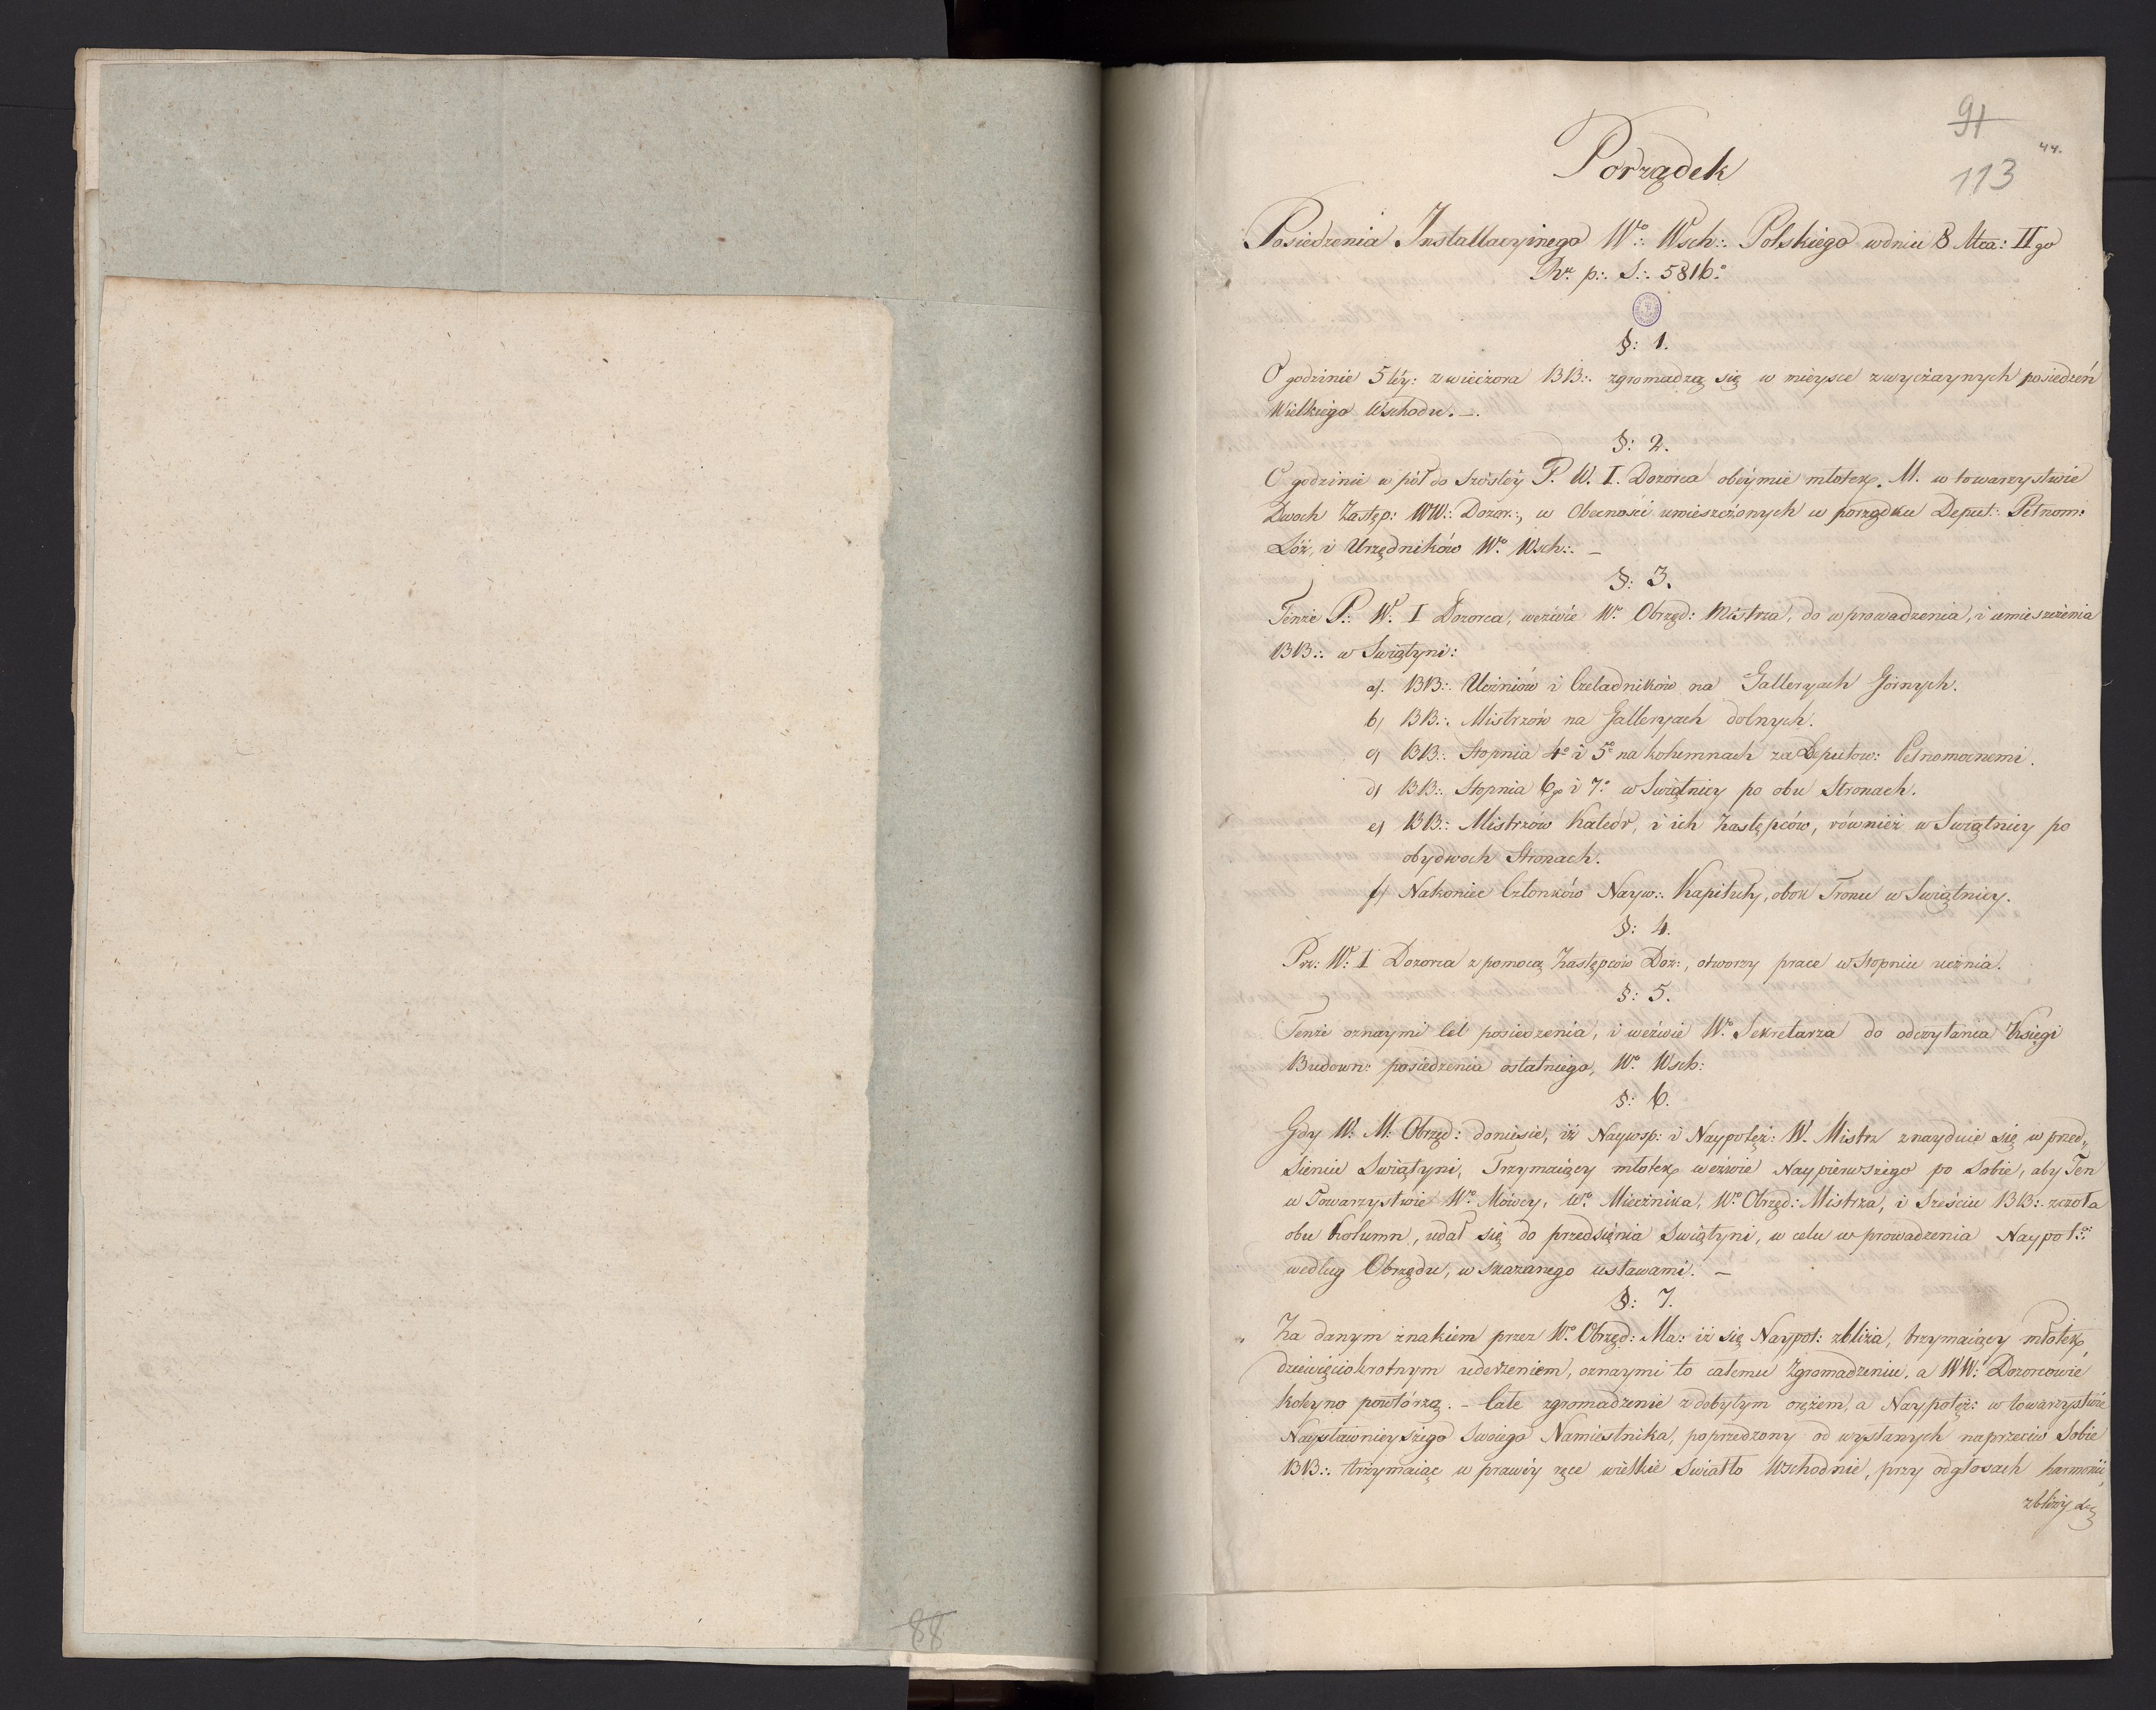 88
91
44.
113
Porządek
Posiedzenia Installacyinego Wgo:. Wsch:. Polskiego w dniu 8 Mca: II go
Rku p:. S:. 5816.
§: 1.
O godzinie 5 téy: z wieczora BB:. zgromadzą się w mieysce zwyczaynych posiedzeń
Wielkiego Wschodu. –
§: 2.
O godzinie w pół do Szósléy P. W. I. Dozorca obéymie młotek. M. w towarzystwie
Dwoch Zastęp: WW:. Dozor:, w Obecności umieszczonych w porządku Deput: Pełnom:
Lóż, i Urzędników Wo Wsch:. –
§: 3.
Tenże P:. W. I Dozorca, wezwie Wo Obrzęd: Mistrza, do wprowadzenia, i umieszczenia
BB:. w Swiątyni:
a/. BB:. Uczniów i Czeladników na Galleryach Gornych.
b/ BB:. Mistrzów na Galleryach dolnych.
c/ BB:. Stopnia 4o i 5o na kolumnach za Deputow: Pełnomocnemi.
d/ BB:. Stopnia 6go i 7o w Swiątnicy po obu Stronach.
e/ BB:. Mistrzów Katedr, i ich Zastępców, również w Swiątnicy po
obydwoch Stronach.
f/ Nakoniec Członków Nayw:. Kapituły, obok Tronu w Swiątnicy.
§: 4.
Prz: W: I Dozorca z pomocą Zastępców Doz:, otworzy prace w Stopniu ucznia.
§: 5.
Tenże oznaymi cel posiedzenia, i wezwie Wo Sekretarza do odczytania Księgi
Budown: posiedzenia ostatniego, Wo Wsch:
§: 6.
Gdy W. M. Obrzęd: doniesie, iż Naywsp: i Naypotęż: W. Mistrz znayduie się w przed,
sieniu Swiątyni, Trzymaiący młotek wezwie Naypierwszego po Sobie, aby Ten
w Towarzystwie Wo Mówcy, Wo Miecznika, Wo Obrzęd: Mistrza, i Sześciu BB:. z czoła
obu Kolumn, udał się do przedsięnia Swiątyni, w celu wprowadzenia Naypot:.
według Obrzędu, wskazanego ustawami. –
§: 7.
Za danym znakiem przez Wo Obrzęd: Ma: iż się Naypot: zbliża, trzymaiący młotek,
dziewięciokrotnym uderzeniem, oznaymi to całemu Zgromadzeniu, a WW: Dozorcowie
koleyno powtórzą. – Całe zgromadzenie z dobytym orężem, a Naypotęż: w towarzystwie
Naysławnieyszego Swoiego Namiestnika, poprzedzony od wysłanych naprzeciw Sobie
BB:. trzymaiąc w prawéy ręce wielkie Swiatło Wschodnie, przy odgłosach harmonii,
zbliży się